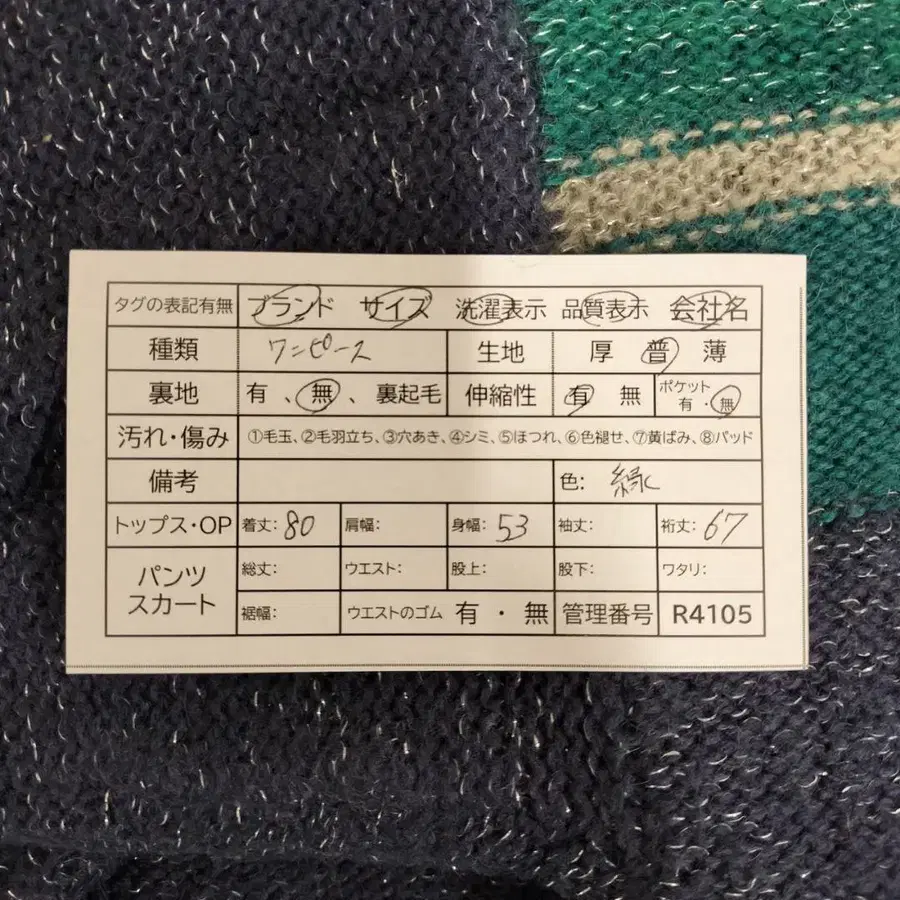 タグの表記有無 ブランド サイズ 洗濯表示 品質表示 会社名
種類 ワンピース 生地 厚 普 薄
裏地 有、無、裏起毛 伸縮性 有 無 ポケット 有・無
汚れ・傷み ①毛玉、②毛羽立ち、③穴あき、④シミ、⑤ほつれ、⑥色褪せ、⑦黄ばみ、⑧パッド
備考 色: 緑
トップス・OP 着丈: 80 肩幅: 身幅: 53 袖丈: 裄丈: 67
パンツ スカート 総丈: ウエスト: 股上: 股下: ワタリ:
裾幅: ウエストのゴム 有・無 管理番号 R4105